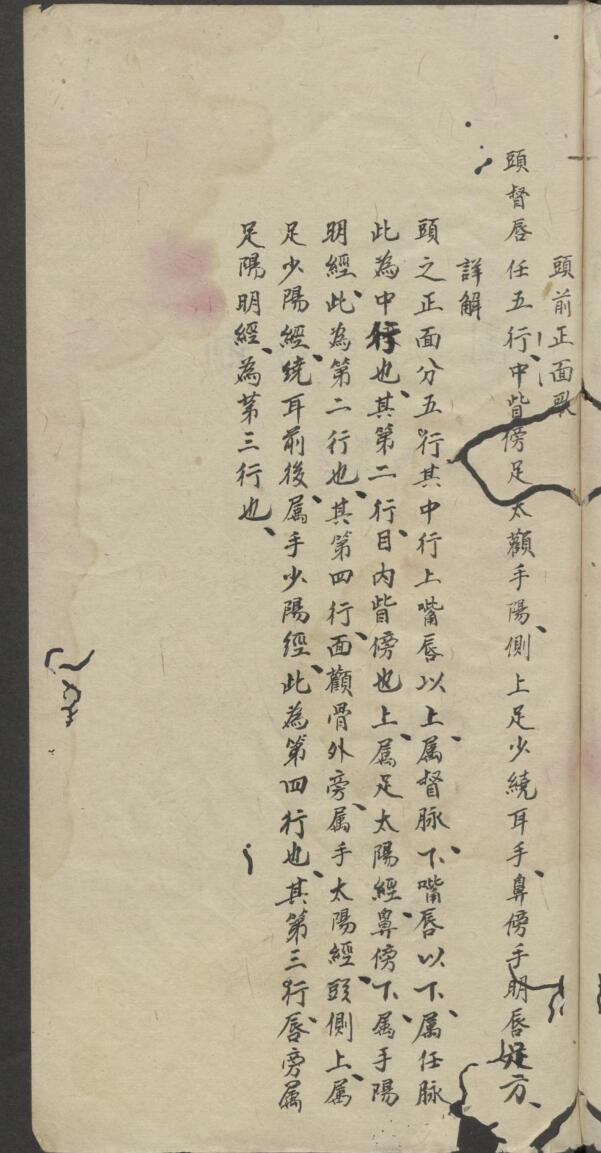 頭前正面歌
頭督唇任五行、中眥傍足太顴手陽、側上足少繞耳手、鼻傍手明唇足方、
詳解
頭之正面分五行其中行上嘴唇以上、属督脉、下嘴唇以下、属任脉
此為中行也、其第二行、目內眥傍也上、属足太陽經、鼻傍下、属手陽
明經、此為第二行也、其第四行、面顴骨外旁、属手太陽經、頭側上、属
足少陽經、繞耳前後、属手少陽經、此為第四行也、其第三行、唇旁属
足陽明經、為苐三行也、